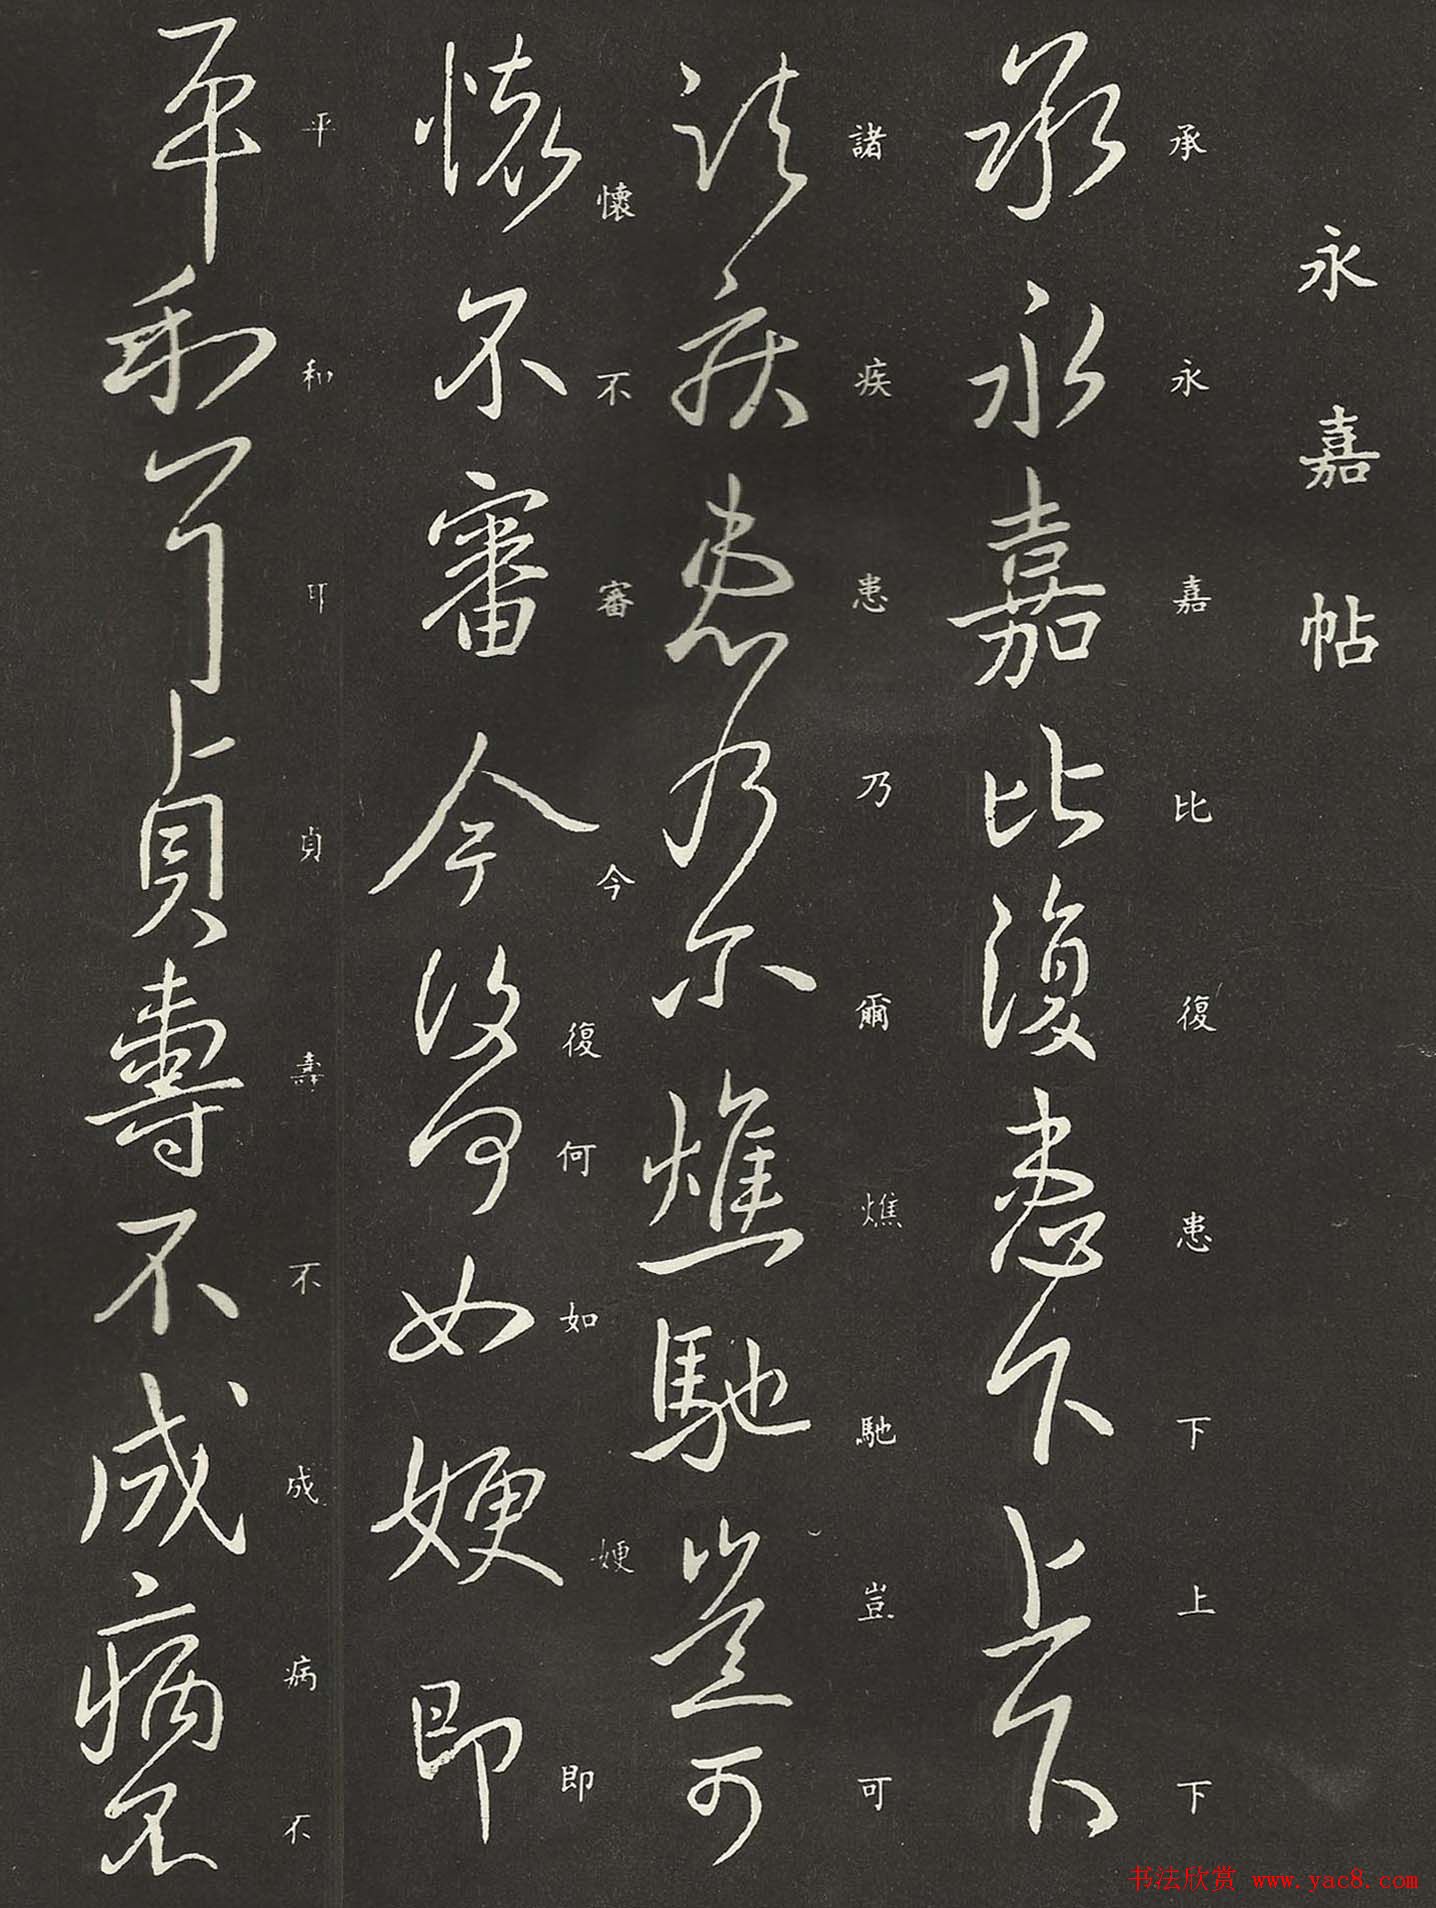 永嘉帖
承永嘉比復患下上下
承永嘉比復患下上下
諸疾患乃爾燋馳豈可
諸疾患乃爾燋馳豈可
懷不審今復何如㛐即
懷不審今復何如㛐即
平和耳貞壽不成病不
平和耳貞壽不成病不
书法欣赏 www.yac8.com